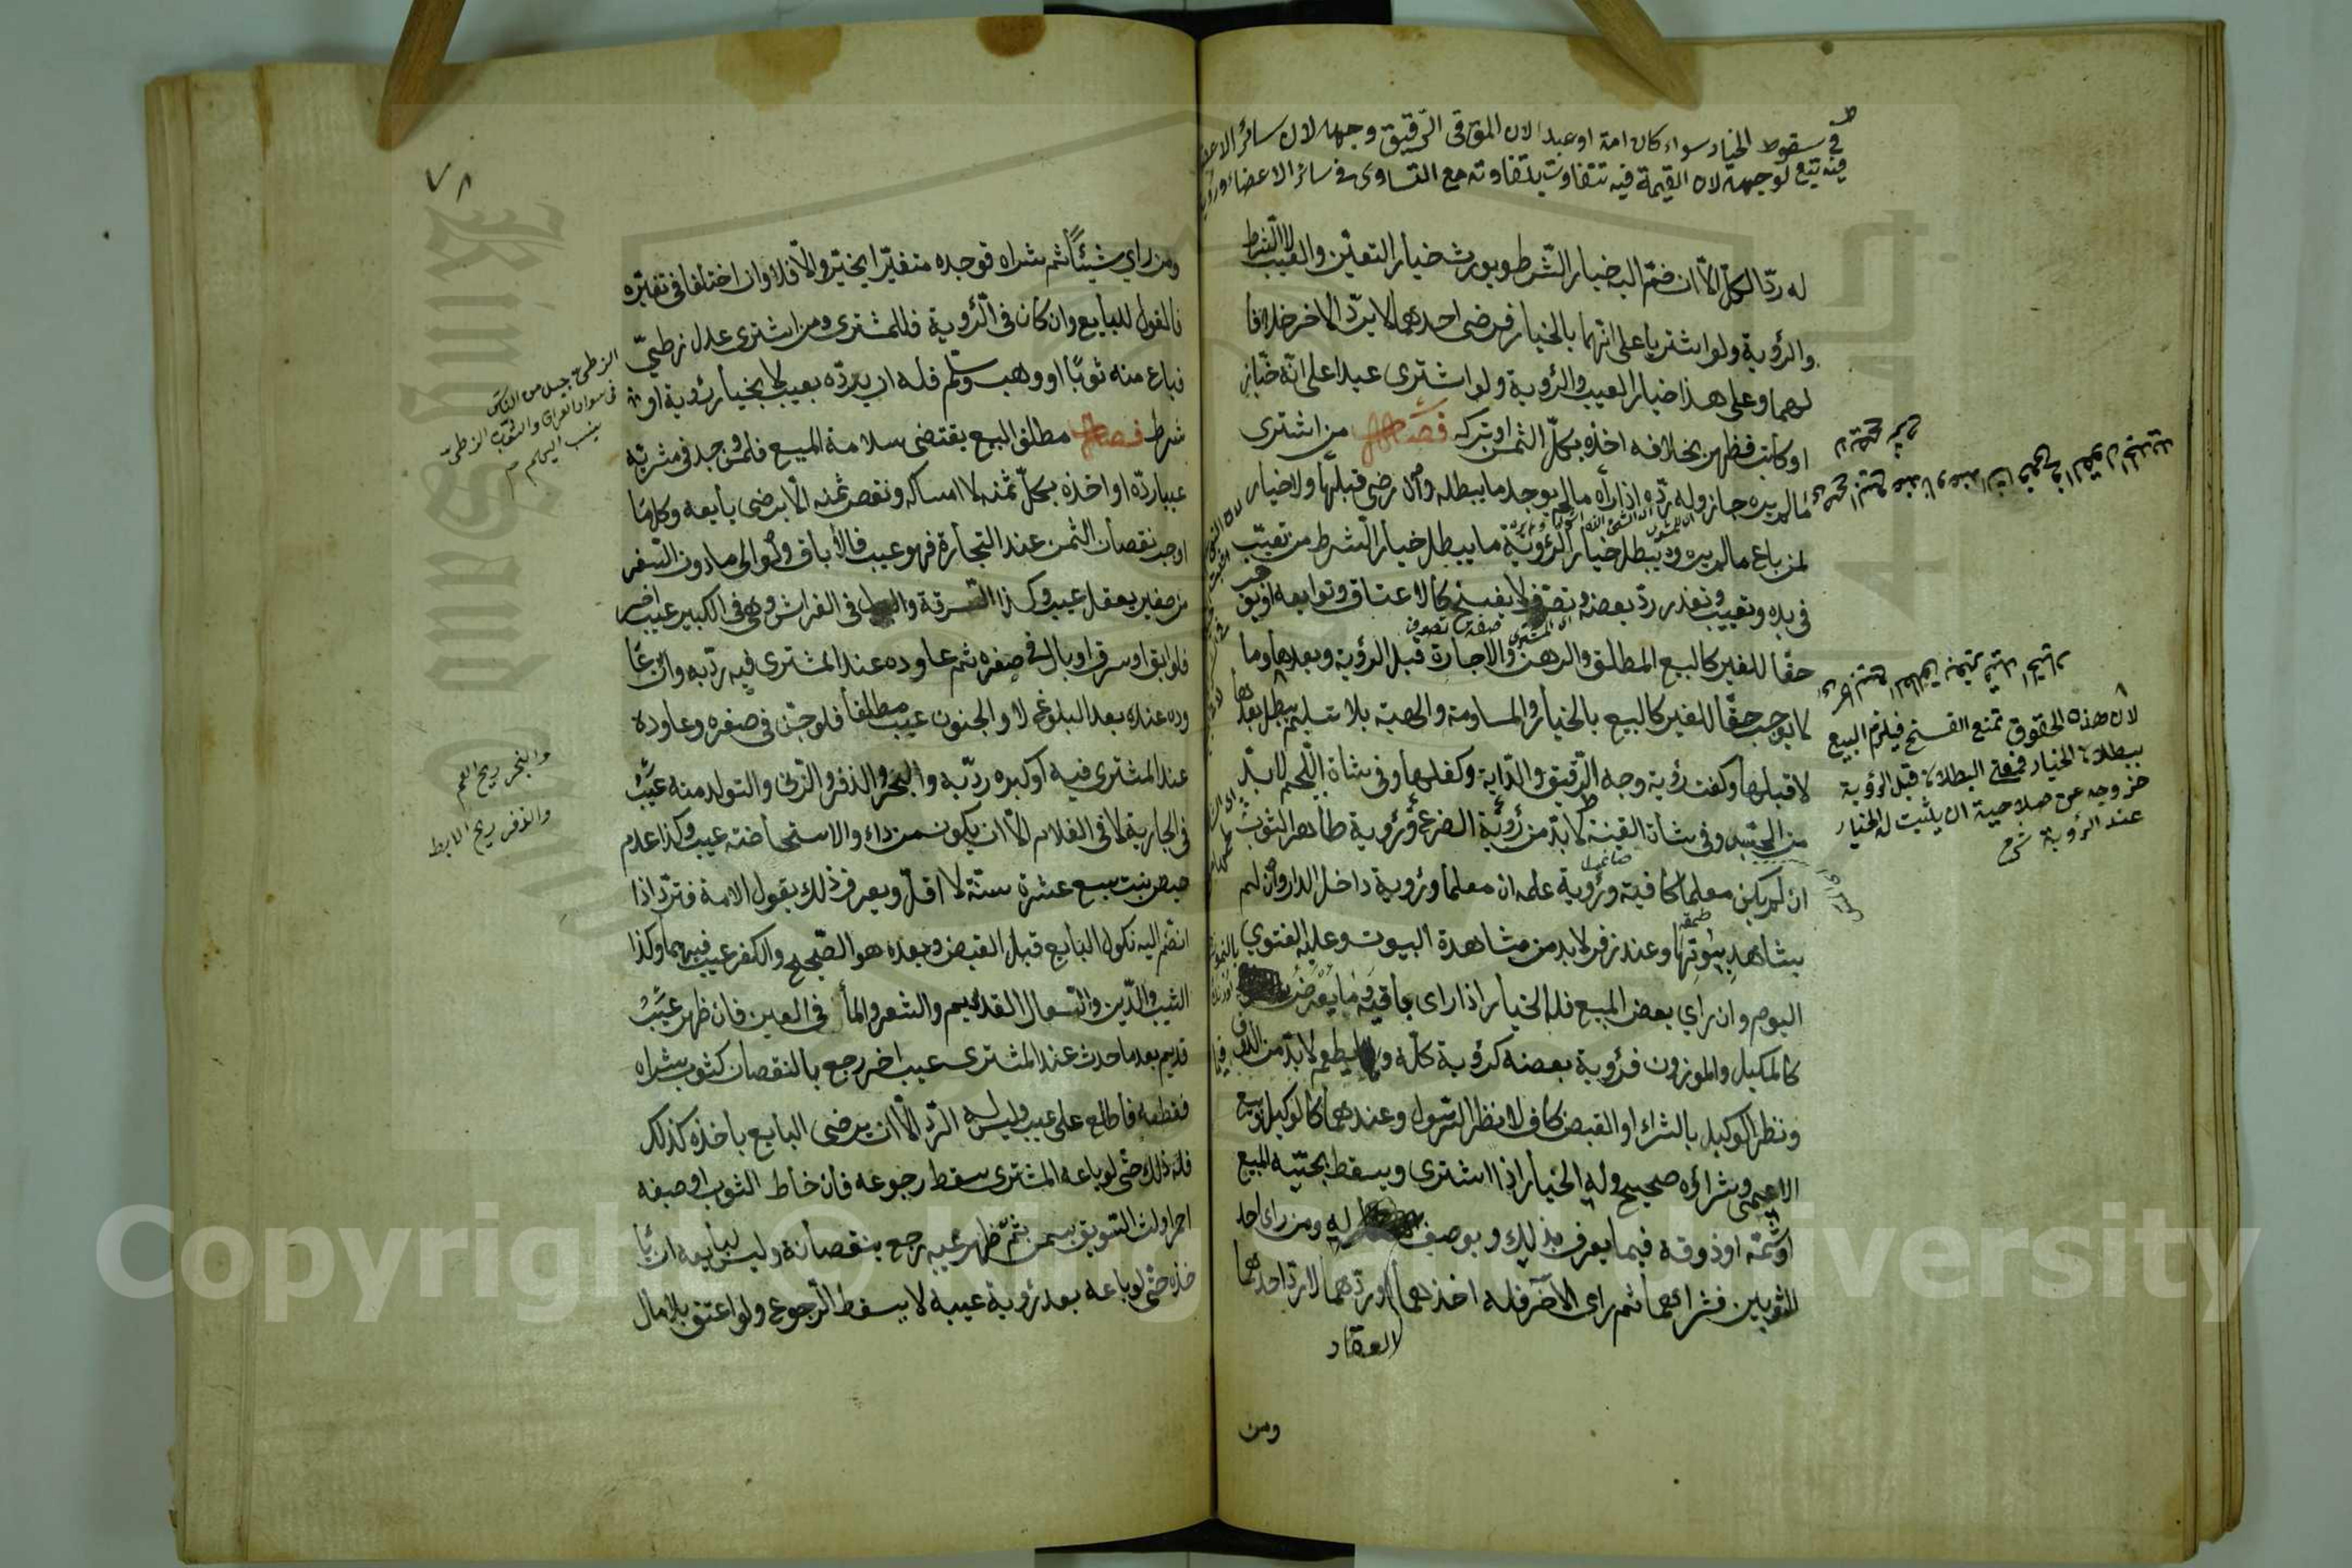 في سقوط الخيار سواء كان امة او عبدا لان المؤتى الرقيق وجهه لان سائر الاعضا
فيه تبع لوجهه لان القيمة فيه تتفاوت بتفاوته مع التساوى فى سائر الاعضاء
له ردّ الكلّ الّا ان ضمّ اليه خيار الشّرط ويورث خيار التعيّن والعيب لا الشرط
والرؤية ولو اشتريا على انهما بالخيار فرضى احدهما لا يردّ الاخر خلافا
لهما وعلى هذا خيار العيب والرؤية ولو اشترى عبدا على انّه خبّاز
او كاتب فظهر بخلافه اخذه بكلّ الثمن او بتركه فصل من اشترى
مالم يره جاز وله ردّه اذا رأه مالم يوجد ما يبطله وان رضى قبلها ولا خيار
لمن باع مالم يره ويبطل خيار الرّؤية ما يبطل خيار الشرط من تعيّب
فى يده وتعيب وتعذر ردّ بعضه وتصرّف لا يفسخ كالاعتاق وتوابعه او يوجب
حقّا للغير كالبيع المطلق والرهن والاجارة قبل الرؤية وبعدها وما
لا يوجب حقّا للغير كالبيع بالخيار والمساومة والهبة بلا تسليم يبطل بعدها
لا قبلها وكفت رؤية وجه الرّقيق والدّابة وكفلها وفى شاة اللّحم لابدّ
من الجسّ وفى شاة القنية لابدّ من رؤية الضرع ورؤية ظاهر الثوب
ان لم يكن معلما كافية ورؤية علمه ان معلما ورؤية داخل الدار وان لم
يشاهد بيوتها وعند زفر لابد من مشاهدة البيوت وعليه الفتوى
اليوم وان راى بعض المبيع فله الخيار اذا راى باقيه وما يعرض
كالمكيل والموزون فرؤية بعضه كرؤية كلّه وفيما يطعم لابدّ من الذوق
ونظر الوكيل بالشراء او القبض كاف لا نظر الرسول وعندهما كالوكيل وبيع
الاعمى وشراؤه صحيح وله الخيار اذا اشترى ويسقط بجسّه المبيع
او شمّه او ذوقه فيما يعرف بذلك وبوصف له ومن راى احد
الثوبين فشراهما ثم راى الآخر فله اخذهما او ردّهما لا ردّ احدهما
العقار
ومن
لان هذه الحقوق تمنع الفسخ فيلزم البيع
ببطلان الخيار فمعنى البطلان قبل الرؤية
خروجه عن صلاحية ان يثبت له الخيار
عند الرؤية شرح
٧٨
ومن راى شيئًا ثم شراه فوجده متغيّرا يخيّر والّا فلا وان اختلفا فى تغيّره
فالقول للبايع وان كان فى الرّؤية فللمشترى ومن اشترى عدل زطىّ
فباع منه ثوبًا او وهب وسلّم فله ان يردّه بعيب لا بخيار رؤية او
شرط فصل مطلق البيع يقتضى سلامة المبيع فلمن وجد فى مشريّه
عيبا ردّه او اخذه بكلّ ثمنه لا امساكه ونقص ثمنه الّا برضى بايعه وكلّما
اوجب نقصان الثمن عند التجارة فهو عيب فالاباق ولو الى مادون السّفر
من صغير يعقل عيب وكذا السّرقة والبول فى الفراش وهى فى الكبير عيب اخر
فلو ابق او سرق او بال فى صغره ثم عاوده عند المشترى فيه ردّ به وان
عاوده عنده بعد البلوغ لا والجنون عيب مطلقا فلو جنّ فى صغره وعاوده
عند المشترى فيه او كبره ردّ به والبخر والذفر والزنى والتولد منه عيب
فى الجارية لا فى الغلام الّا ان يكون من داء والاستحاضة عيب وكذا عدم
حيض بنت سبع عشرة سنة لا اقلّ ويعرف ذلك بقول الامة فتردّ اذا
انضم اليه نكول البايع قبل القبض وبعده هو الصّحيح والكفر عيب فيهما وكذا
الشيب والدّين والسعال القديم والشعر والماء فى العين فان ظهر عيب
قديم بعد ما حدث عند المشترى عيب اخر رجع بالنقصان كثوب شراه
فقطعه فاطلع على عيب وليس له الرّد الّا ان يرضى البايع باخذه كذلك
فله ذلك حتى لو باعه المشترى سقط رجوعه فان خاط الثوب او صبغه
احمر او لتّ السّويق بسمن ثمّ ظهر عيبه رجع بنقصانه وليس لبايعه ان يا
خذه حتى لو باعه بعد رؤية عيبه لا يسقط الرّجوع ولو اعتق بلا مال
الزطىّ جيل من الناس
فى سواد العراق والثوب الزطىّ
ينسب اليهم
والبخر ريح الفم
والذفر ريح الابط